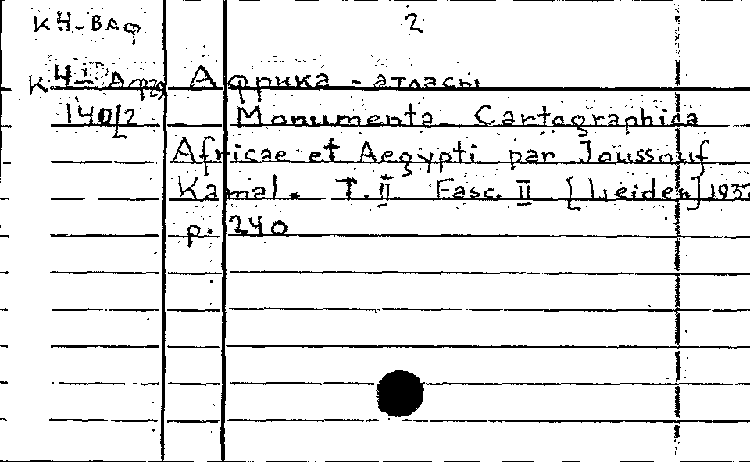 К4-ВАФ 2
К 4-I Африка - атласы
140/2 Monumenta Cartographica
Africae et Aegypti par Joussouf
Kamal. T.II Fasc. II [Leiden] 1932
p. 240